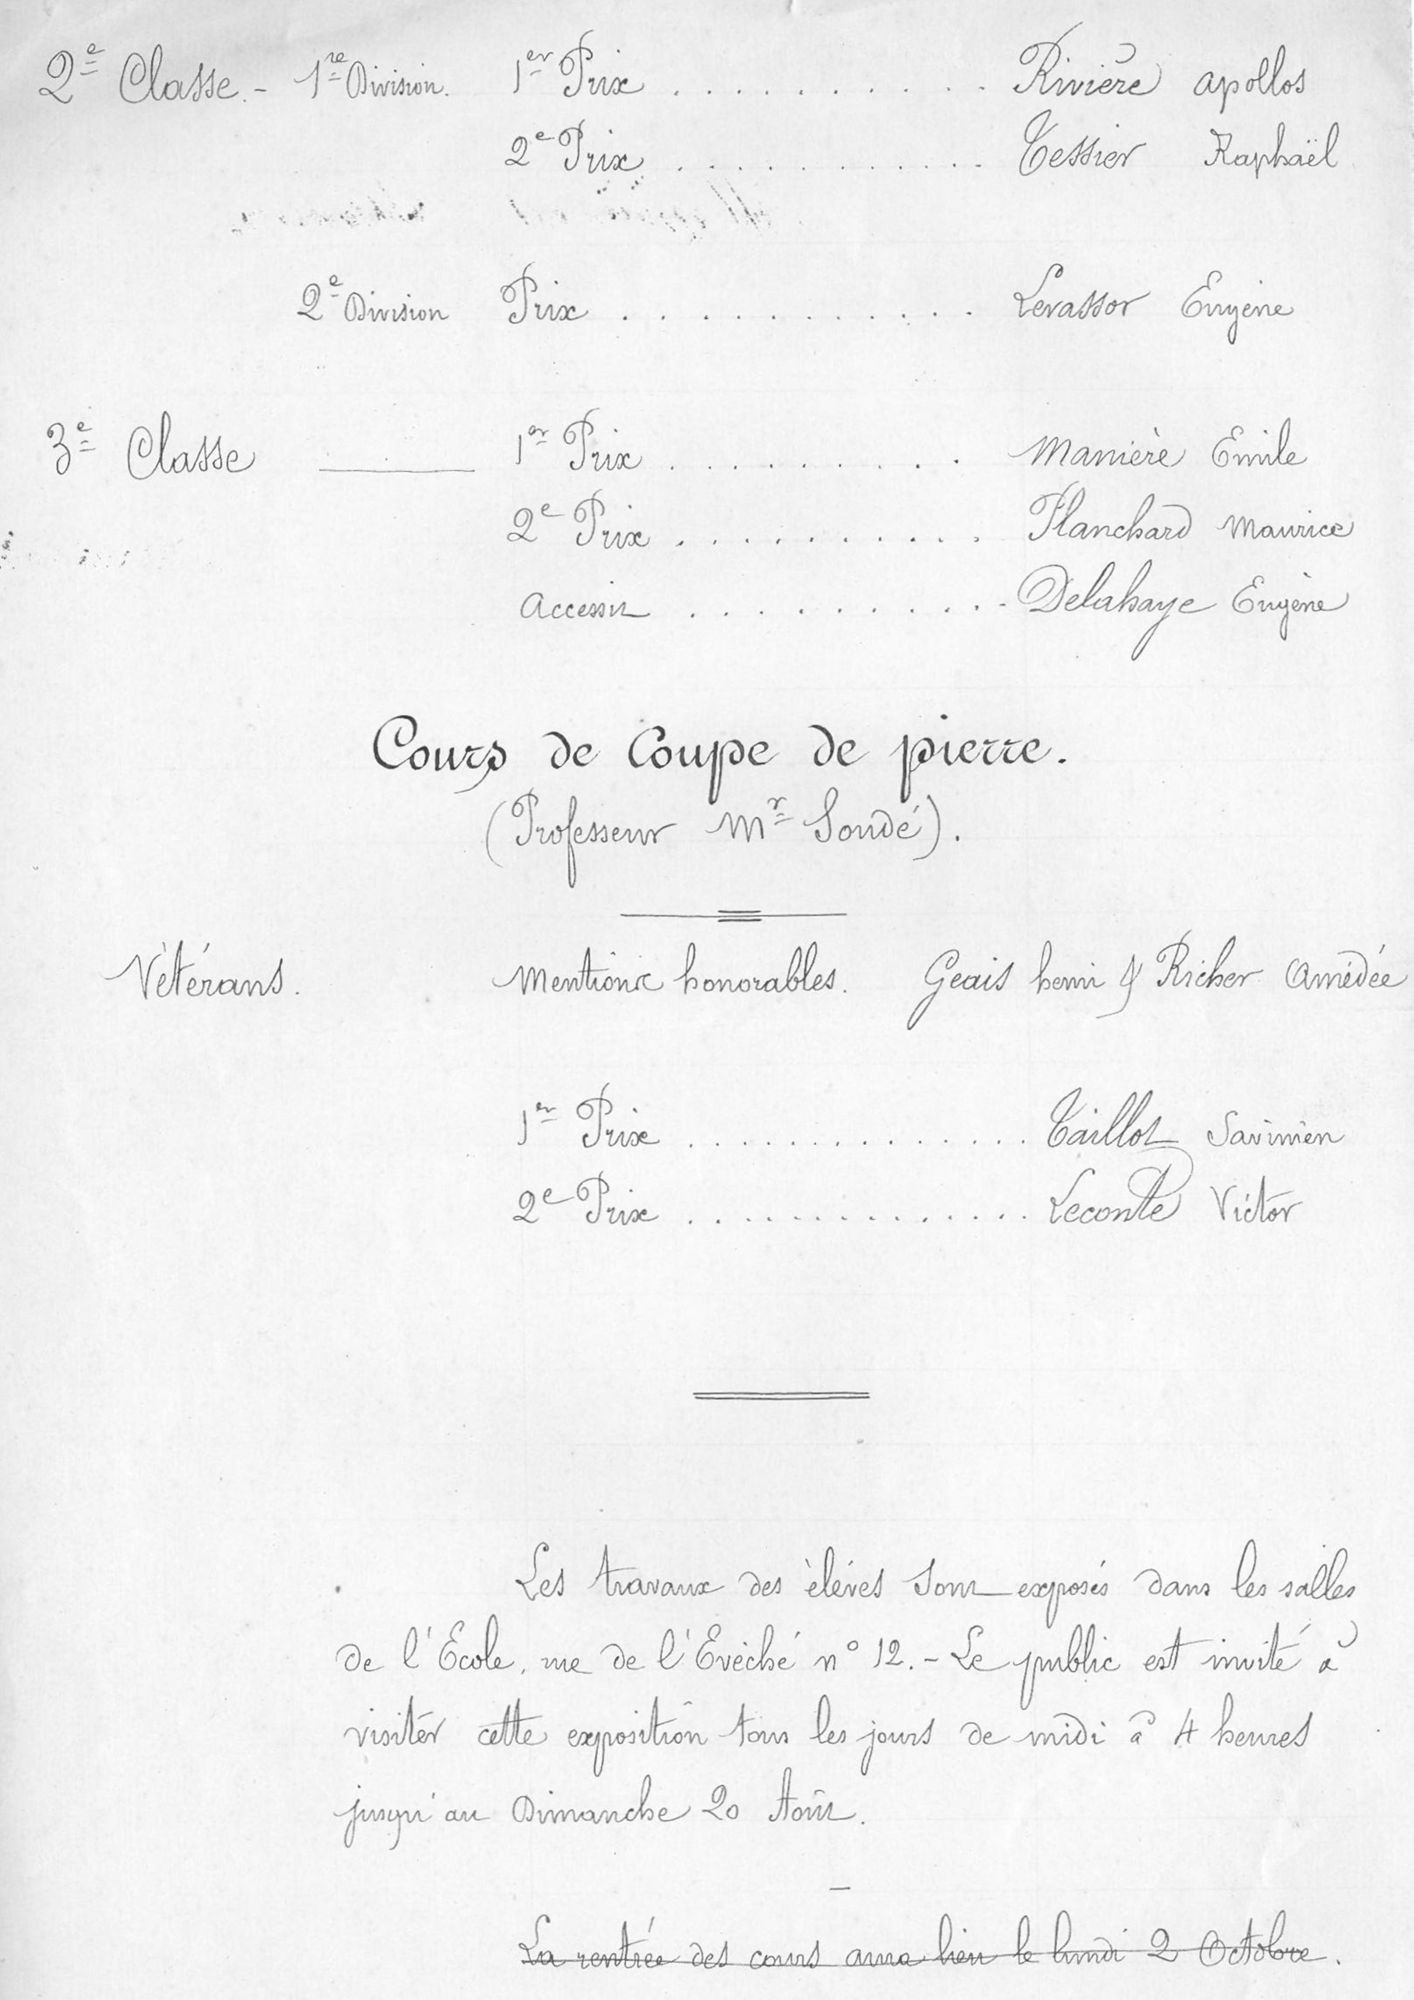 2e Classe. - 1re Division. 1er Prix . . . . . . . . . . . Rivière Apollos
2e Prix . . . . . . . . . . . Tessier Raphaël
2e Division Prix . . . . . . . . . . . Levassor Eugène
3e Classe 1er Prix . . . . . . . . . . Manière Emile
2e Prix . . . . . . . . . . Planchard Maurice
Accessit . . . . . . . . . . . Delahaye Eugène
Cours de Coupe de pierre.
(Professeur Mr Soudé).
Vétérans. Mentions honorables. Geais henri & Richer Amédée
1er Prix . . . . . . . . . . . . . . Taillot Savinien
2e Prix . . . . . . . . . . . . . . Leconte Victor
Les travaux des élèves sont exposés dans les salles
de l'Ecole, rue de l'Evêché n° 12. - Le public est invité à
visiter cette exposition tous les jours de midi à 4 heures
jusqu'au Dimanche 20 Août.
La rentrée des cours aura lieu le lundi 2 Octobre.